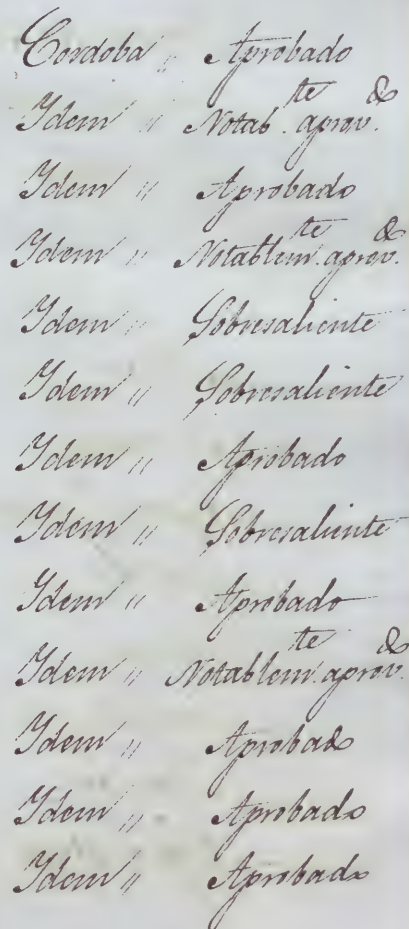 Cordoba " Aprobado
Ydem " Notab.te aprov.do
Ydem " Aprobado
Ydem " Notablem.te aprov.do
Ydem " Sobresaliente
Ydem " Sobresaliente
Ydem " Aprobado
Ydem " Sobresaliente
Ydem " Aprobado
Ydem " Notablem.te aprov.do
Ydem " Aprobado
Ydem " Aprobado
Ydem " Aprobado